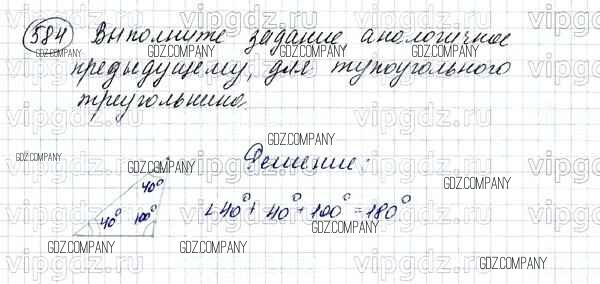 584 Выполните задание аналогичное
предыдущему, для тупоугольного
треугольника.
Решение:
40°
40° 100°
∠40° + 40° + 100° = 180°
GDZ.COMPANY
vipgdz.ru